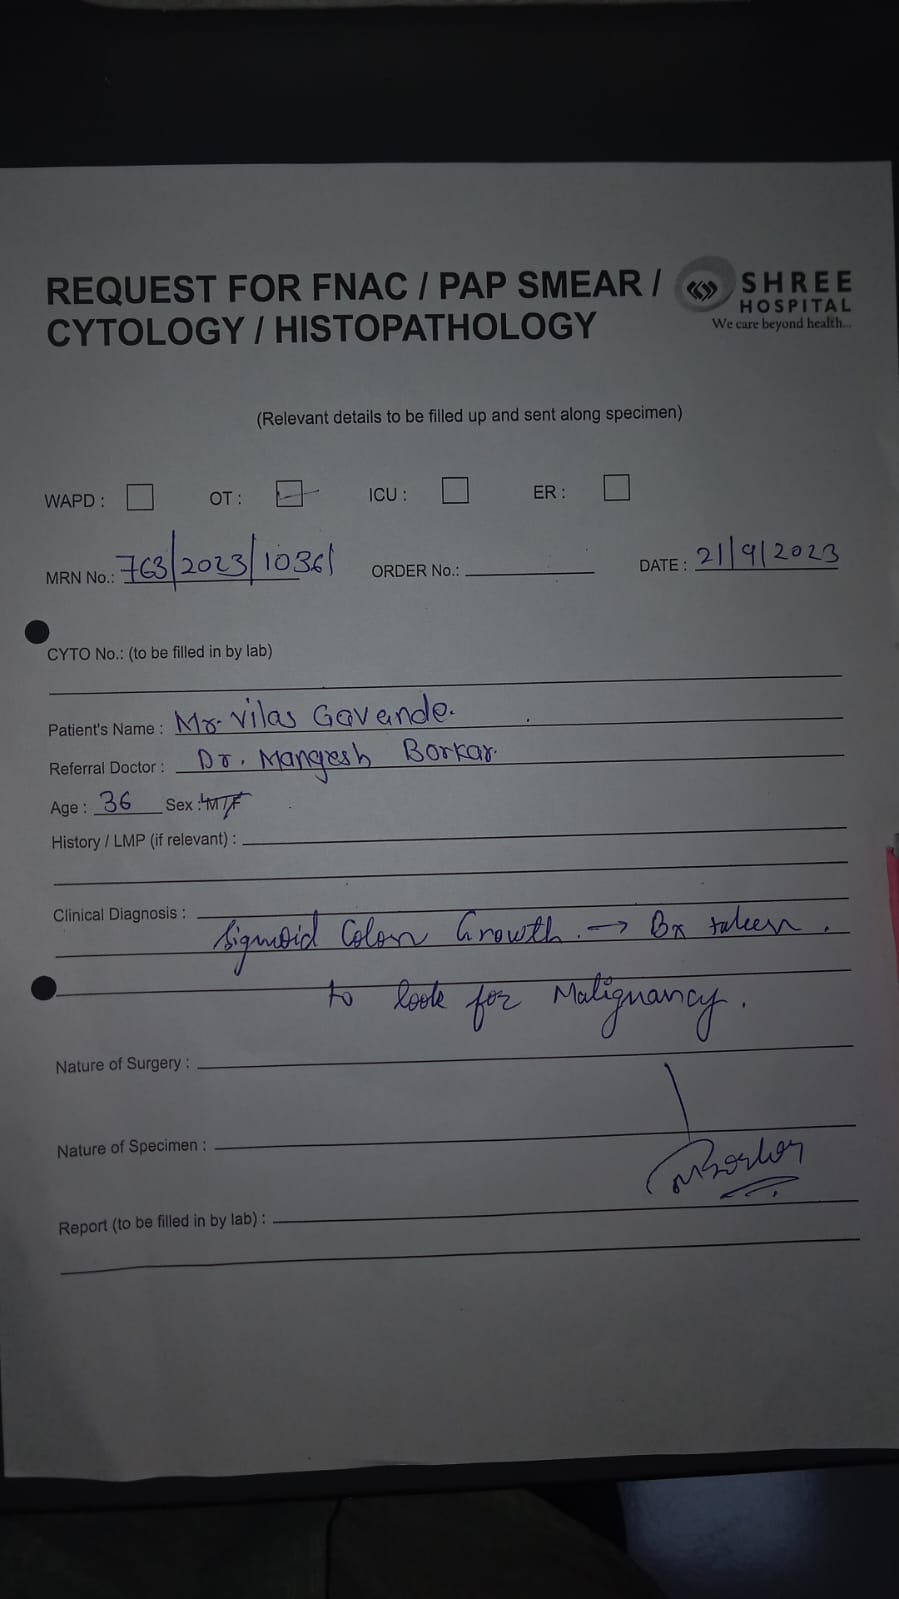 REQUEST FOR FNAC / PAP SMEAR /
CYTOLOGY / HISTOPATHOLOGY
SHREE
HOSPITAL
We care beyond health...
(Relevant details to be filled up and sent along specimen)
WAPD : OT : ICU : ER :
MRN No.: 763/2023/10361 ORDER No.: DATE : 21/9/2023
CYTO No.: (to be filled in by lab)
Patient's Name : Mr. Vilas Gavande.
Referral Doctor : Dr. Mangesh Borkar.
Age : 36 Sex : M/F
History / LMP (if relevant) :
Clinical Diagnosis :
Sigmoid Colon Growth. → Bx taken.
to look for Malignancy.
Nature of Surgery :
Nature of Specimen :
MBorkar
Report (to be filled in by lab) :